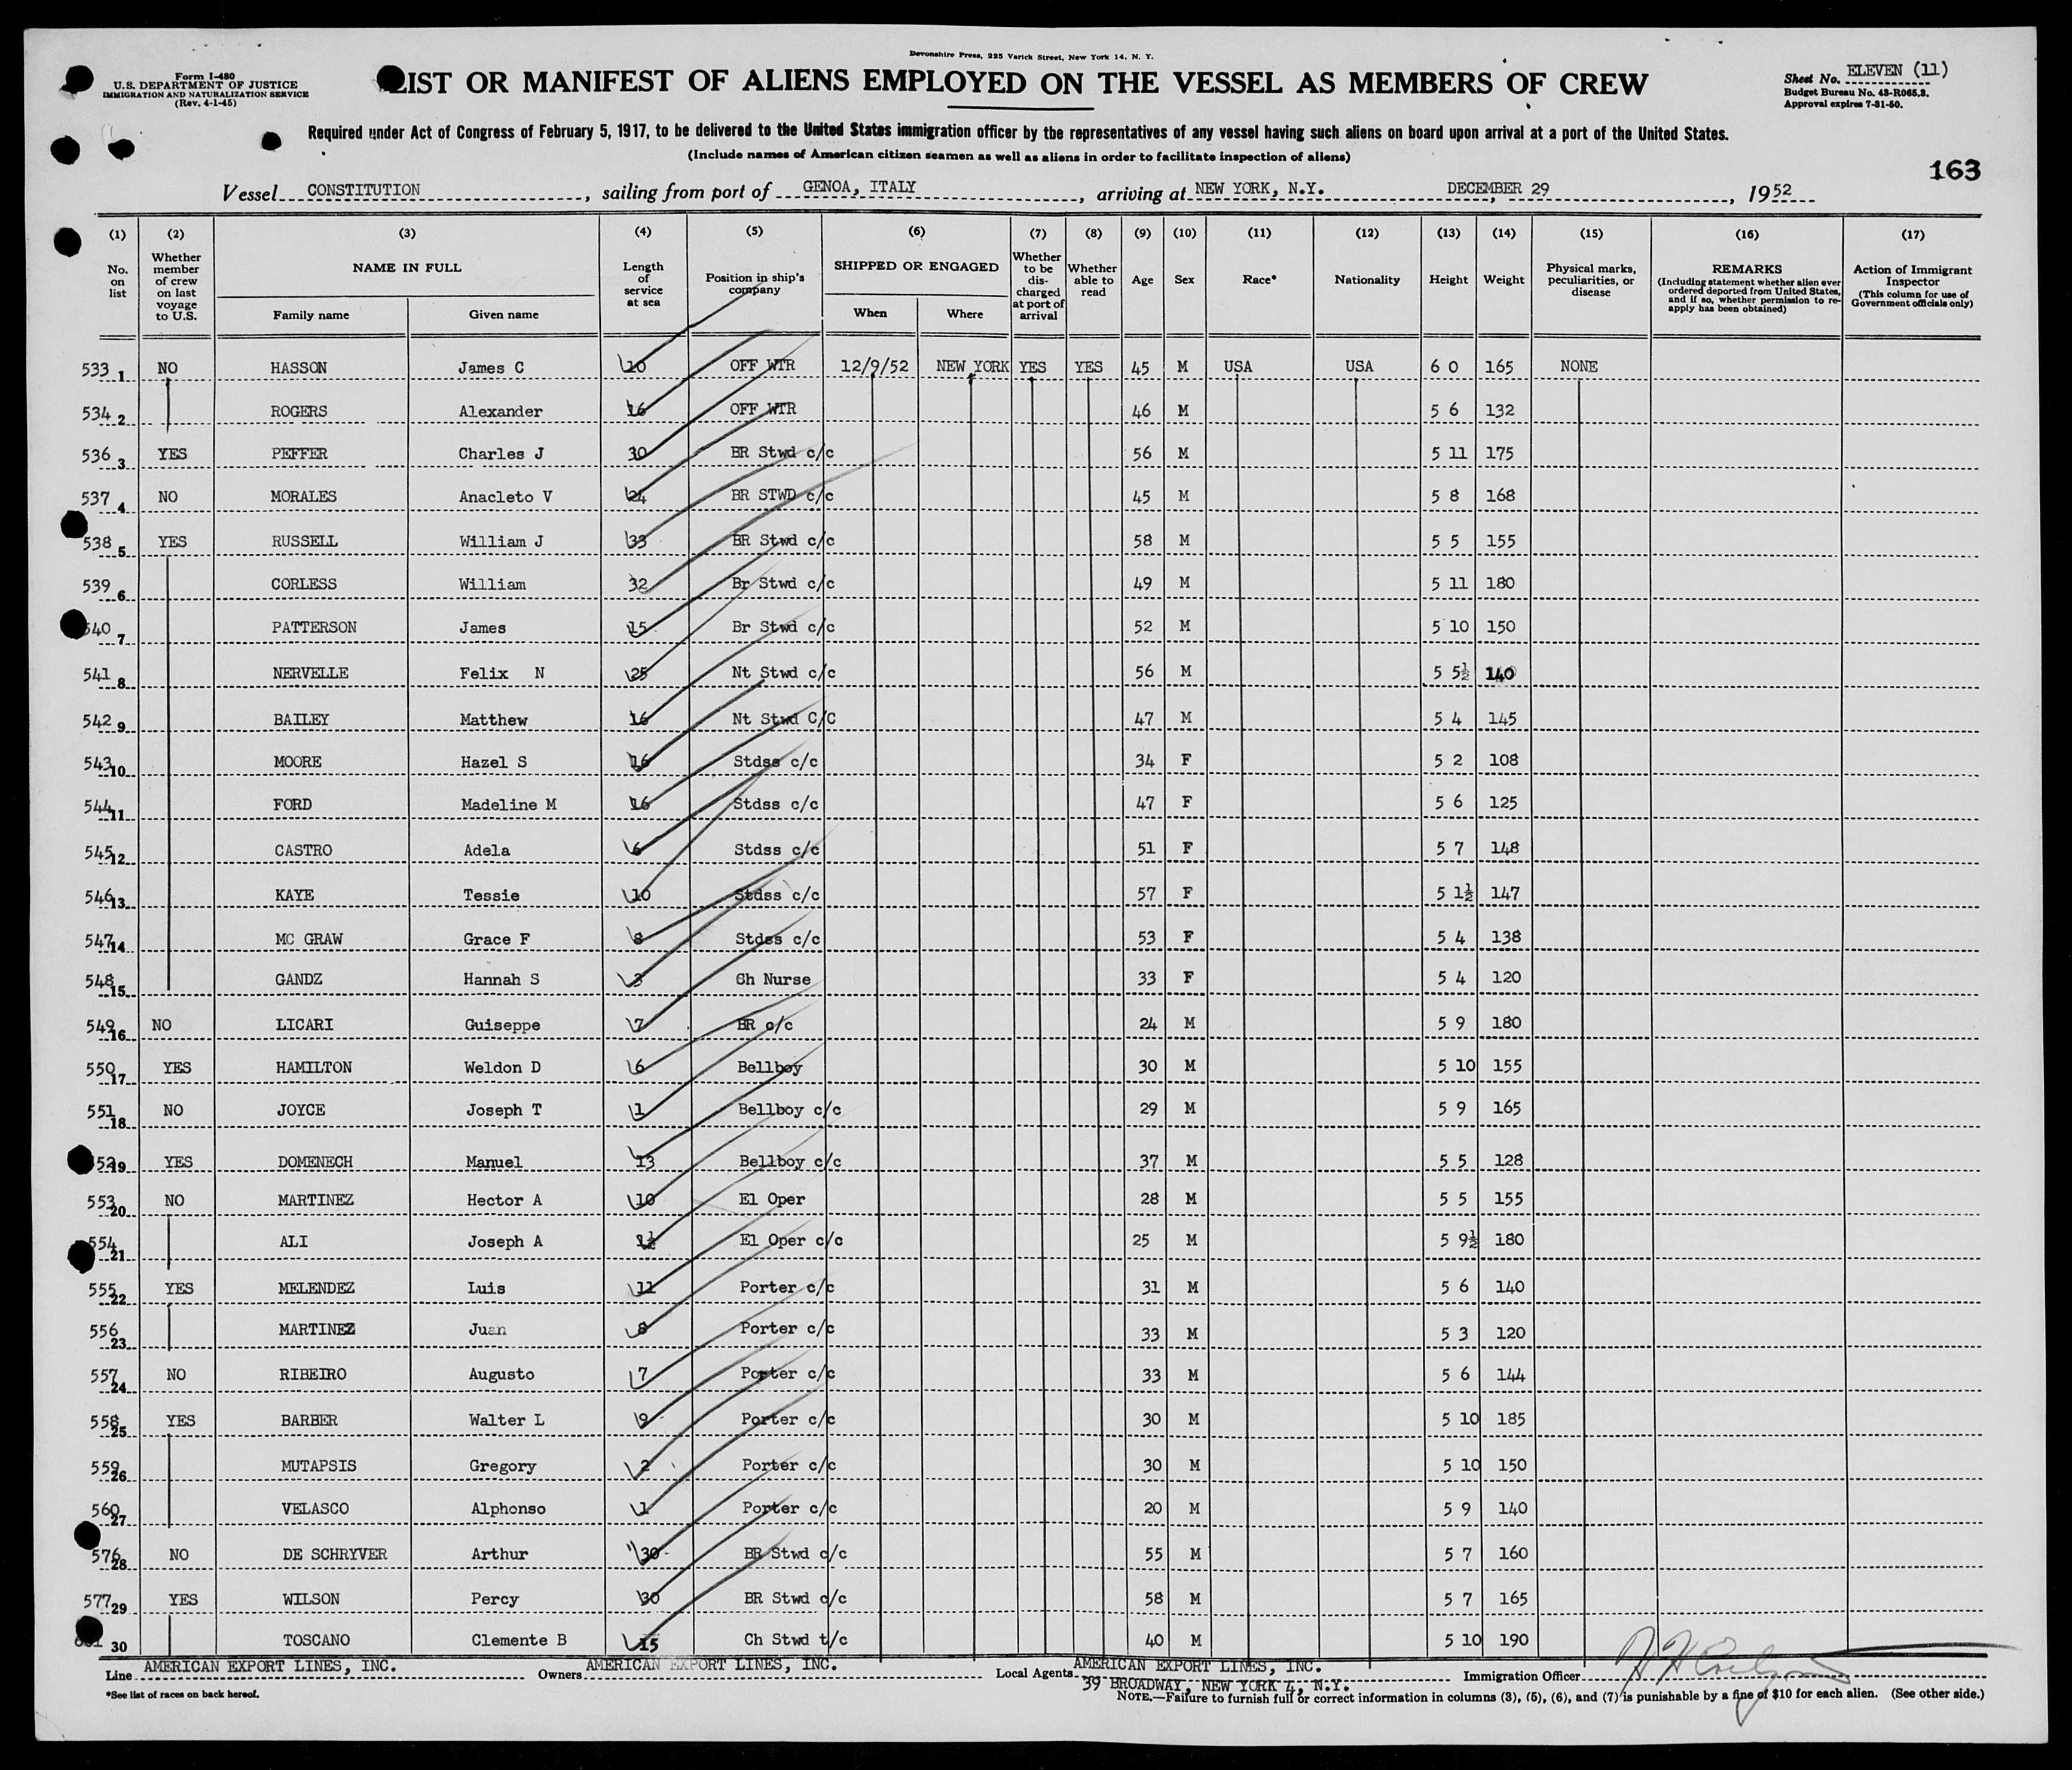 Devonshire Press, 225 Varick Street, New York 14, N. Y.
Form I-480
U.S. DEPARTMENT OF JUSTICE
IMMIGRATION AND NATURALIZATION SERVICE
(Rev. 4-1-45)
LIST OR MANIFEST OF ALIENS EMPLOYED ON THE VESSEL AS MEMBERS OF CREW
Sheet No. ELEVEN (11)
Budget Bureau No. 43-R065.3.
Approval expires 7-31-50.
Required under Act of Congress of February 5, 1917, to be delivered to the United States immigration officer by the representatives of any vessel having such aliens on board upon arrival at a port of the United States.
(Include names of American citizen seamen as well as aliens in order to facilitate inspection of aliens)
163
Vessel CONSTITUTION, sailing from port of GENOA, ITALY, arriving at NEW YORK, N.Y. DECEMBER 29, 1952
(1) (2) (3) (4) (5) (6) (7) (8) (9) (10) (11) (12) (13) (14) (15) (16) (17)
No. on list
Whether member of crew on last voyage to U.S.
NAME IN FULL
Family name
Given name
Length of service at sea
Position in ship's company
SHIPPED OR ENGAGED
When
Where
Whether to be discharged at port of arrival
Whether able to read
Age
Sex
Race*
Nationality
Height
Weight
Physical marks, peculiarities, or disease
REMARKS
(Including statement whether alien ever ordered deported from United States, and if so, whether permission to re-apply has been obtained)
Action of Immigrant Inspector
(This column for use of Government officials only)
533 1 NO HASSON James C 10 OFF WTR 12/9/52 NEW YORK YES YES 45 M USA USA 6 0 165 NONE
534 2 ROGERS Alexander 16 OFF WTR 46 M 5 6 132
536 3 YES PEFFER Charles J 30 BR Stwd c/c 56 M 5 11 175
537 4 NO MORALES Anacleto V 24 BR STWD c/c 45 M 5 8 168
538 5 YES RUSSELL William J 33 BR Stwd c/c 58 M 5 5 155
539 6 CORLESS William 32 Br Stwd c/c 49 M 5 11 180
540 7 PATTERSON James 15 Br Stwd c/c 52 M 5 10 150
541 8 NERVELLE Felix N 25 Nt Stwd c/c 56 M 5 5½ 140
542 9 BAILEY Matthew 16 Nt Stwd C/C 47 M 5 4 145
543 10 MOORE Hazel S 16 Stdss c/c 34 F 5 2 108
544 11 FORD Madeline M 16 Stdss c/c 47 F 5 6 125
545 12 CASTRO Adela 6 Stdss c/c 51 F 5 7 148
546 13 KAYE Tessie 10 Stdss c/c 57 F 5 1½ 147
547 14 MC GRAW Grace F 8 Stdss c/c 53 F 5 4 138
548 15 GANDZ Hannah S 3 Ch Nurse 33 F 5 4 120
549 16 NO LICARI Guiseppe 7 BR c/c 24 M 5 9 180
550 17 YES HAMILTON Weldon D 6 Bellboy 30 M 5 10 155
551 18 NO JOYCE Joseph T 1 Bellboy c/c 29 M 5 9 165
19 YES DOMENECH Manuel 13 Bellboy c/c 37 M 5 5 128
553 20 NO MARTINEZ Hector A 10 El Oper 28 M 5 5 155
554 21 ALI Joseph A El Oper c/c 25 M 5 9½ 180
555 22 YES MELENDEZ Luis 11 Porter c/c 31 M 5 6 140
556 23 MARTINEZ Juan 8 Porter c/c 33 M 5 3 120
557 24 NO RIBEIRO Augusto 7 Porter c/c 33 M 5 6 144
558 25 YES BARBER Walter L 9 Porter c/c 30 M 5 10 185
559 26 MUTAPSIS Gregory 2 Porter c/c 30 M 5 10 150
560 27 VELASCO Alphonso 1 Porter c/c 20 M 5 9 140
576 28 NO DE SCHRYVER Arthur 30 BR Stwd c/c 55 M 5 7 160
577 29 YES WILSON Percy 30 BR Stwd c/c 58 M 5 7 165
30 TOSCANO Clemente B 15 Ch Stwd t/c 40 M 5 10 190
Line AMERICAN EXPORT LINES, INC. Owners AMERICAN EXPORT LINES, INC. Local Agents AMERICAN EXPORT LINES, INC. Immigration Officer
39 BROADWAY, NEW YORK 4, N.Y.
*See list of races on back hereof.
NOTE.—Failure to furnish full or correct information in columns (3), (5), (6), and (7) is punishable by a fine of $10 for each alien. (See other side.)